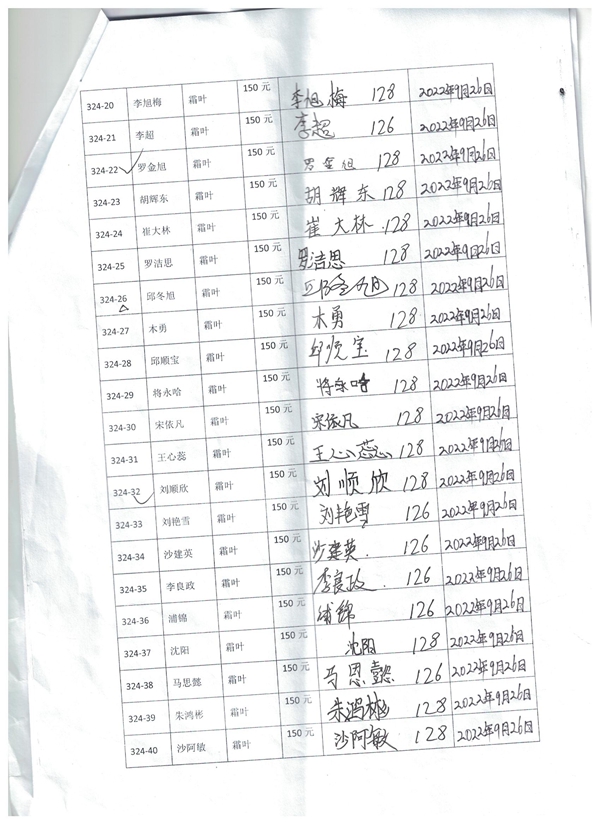 324-20 李旭梅 霜叶 150 元 李旭梅 128 2022年9月26日
324-21 李超 霜叶 150 元 李超 126 2022年9月26日
324-22 罗金旭 霜叶 150 元 罗金旭 128 2022年9月26日
324-23 胡辉东 霜叶 150 元 胡辉东 128 2022年9月26日
324-24 崔大林 霜叶 150 元 崔大林 128 2022年9月26日
324-25 罗洁思 霜叶 150 元 罗洁思 128 2022年9月26日
324-26 邱冬旭 霜叶 150 元 邱冬旭 128 2022年9月26日
324-27 木勇 霜叶 150 元 木勇 128 2022年9月26日
324-28 邱顺宝 霜叶 150 元 邱顺宝 128 2022年9月26日
324-29 将永哈 霜叶 150 元 将永哈 128 2022年9月26日
324-30 宋依凡 霜叶 150 元 宋依凡 128 2022年9月26日
324-31 王心蕊 霜叶 150 元 王心蕊 128 2022年9月26日
324-32 刘顺欣 霜叶 150 元 刘顺欣 128 2022年9月26日
324-33 刘艳雪 霜叶 150 元 刘艳雪 126 2022年9月26日
324-34 沙建英 霜叶 150 元 沙建英. 126 2022年9月26日
324-35 李良政 霜叶 150 元 李良政. 126 2022年9月26日
324-36 浦锦 霜叶 150 元 浦锦 126 2022年9月26日
324-37 沈阳 霜叶 150 元 沈阳 128 2022年9月26日
324-38 马思懿 霜叶 150 元 马思懿 126 2022年9月26日
324-39 朱鸿彬 霜叶 150 元 朱鸿彬 128 2022年9月26日
324-40 沙阿敏 霜叶 150 元 沙阿敏 128 2022年9月26日